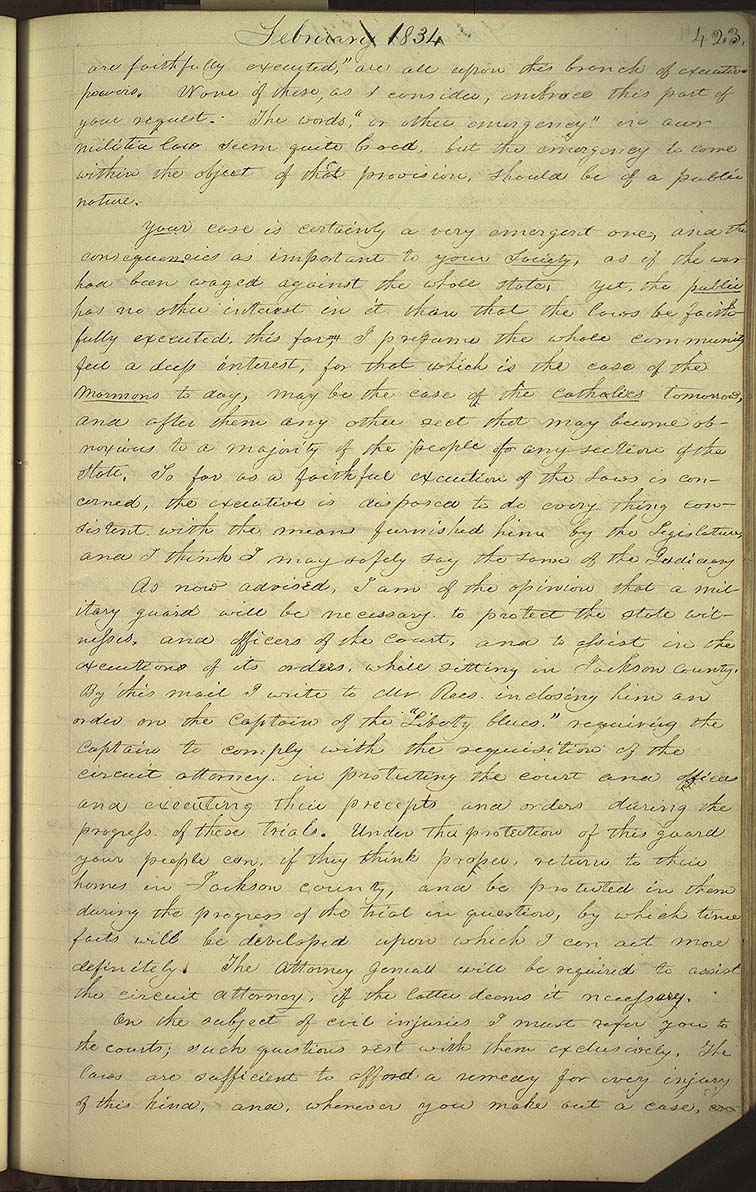 February 1834
423.
are faithfully executed," are all upon this branch of executive
powers. None of these, as I consider, embrace this part of
your request. The words, "or other emergency" in our
militia law seem quite broad, but the emergency to come
within the object of that provision, should be of a public
nature.
Your case is certainly a very emergent one, and the
consequencies as important to your Society, as if the war
had been waged against the whole state, yet, the public
has no other interest in it than that the laws be faith-
fully executed, this far, I presume the whole community
feel a deep interest, for that which is the case of the
Mormons to day, may be the case of the catholics tomorrow,
and after them any other sect that may become ob-
noxious to a majority of the people of any section of the
State. So far as a faithful execution of the Laws is con-
cerned, the executive is disposed to do every thing con-
sistent with the means furnished him by the Legislature,
and I think I may safely say the same of the Judiciary
As now advised, I am of the opinion that a mil-
itary guard will be necessary to protect the state wit-
nesses, and officers of the court, and to assist in the
executions of its orders, while sitting in Jackson County.
By this mail I write to Mr. Rees. inclosing him an
order on the Captain of the "Liberty blues." requiring the
captain to comply with the requisition of the
circuit attorney in protecting the court and officers
and executing their precepts and orders during the
progress of these trials. Under the protection of this guard
your people can, if they think proper, return to their
homes in Jackson county, and be protected in them
during the progress of the trial in question, by which time
facts will be developed upon which I can act more
definitely. The Attorney General will be required to assist
the circuit attorney, if the latter deems it necessary.
On the subject of civil injuries I must refer you to
the courts; such questions rest with them exclusively. The
laws are sufficient to afford a remedy for every injury
of this kind, and, whenever you make out a case,